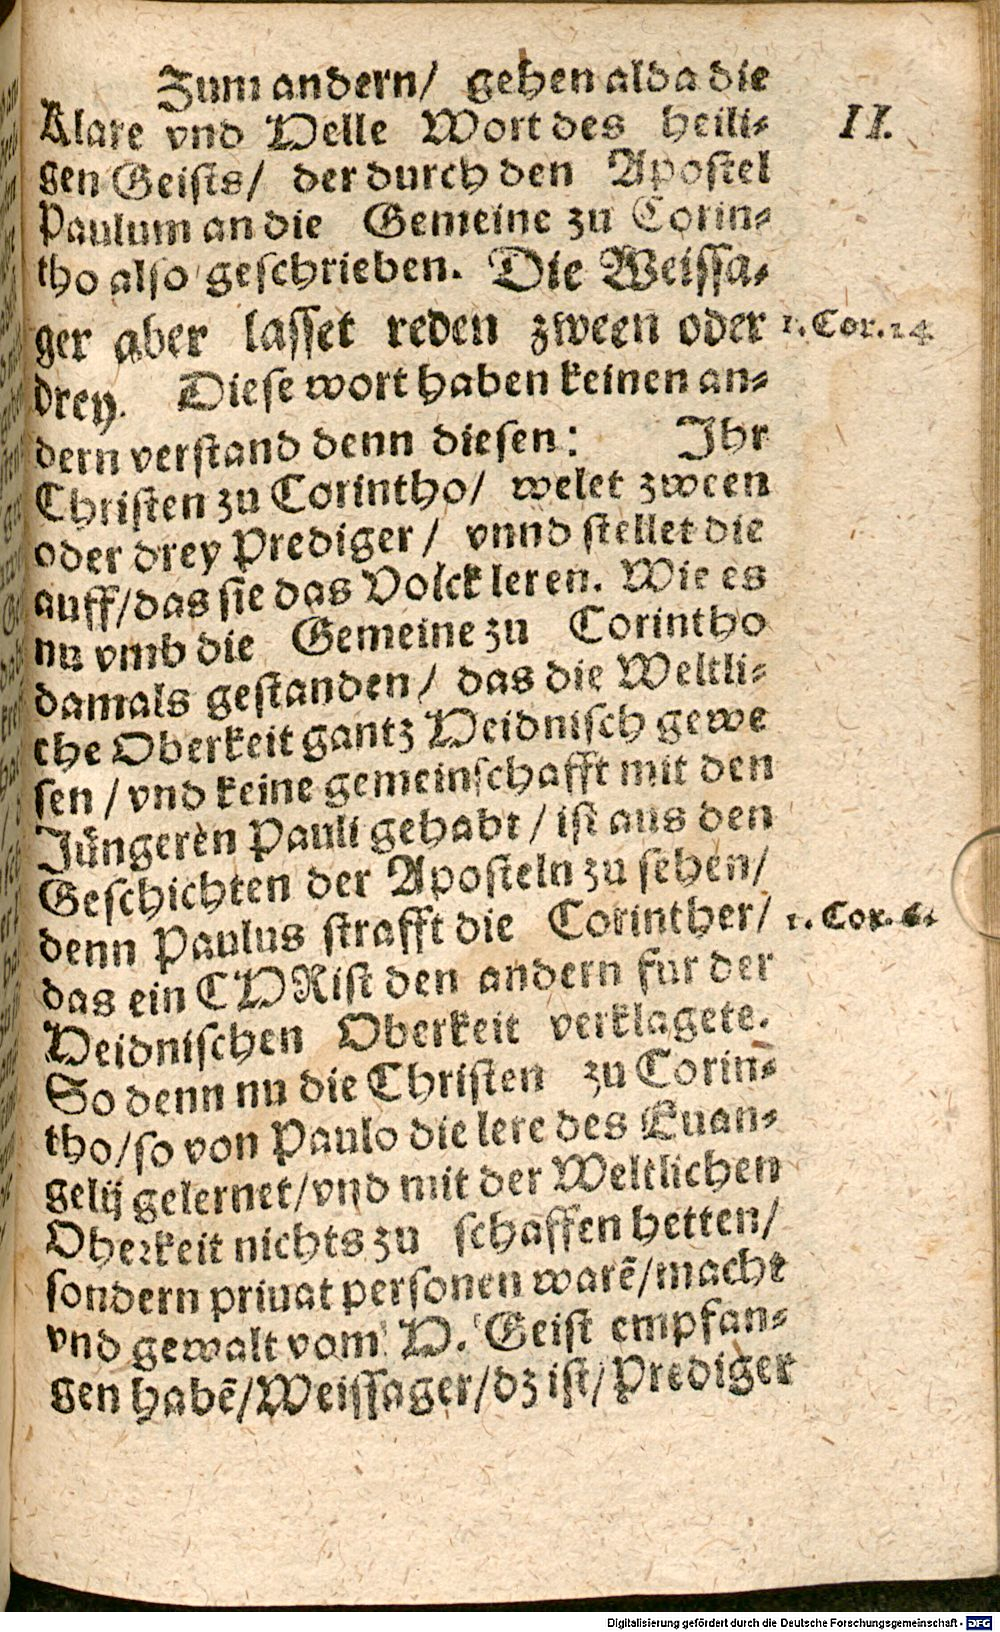 Zum andern/ gehen alda die
Klare vnd Helle Wort des heili⸗
II.
gen Geists/ der durch den Apostel
Paulum an die Gemeine zu Corin⸗
tho also geschrieben. Die Weissa⸗
ger aber lasset reden zween oder
1. Cor. 14
drey. Diese wort haben keinen an⸗
dern verstand denn diesen: Ihr
Christen zu Corintho/ welet zween
oder drey Prediger/ vnnd stellet die
auff/das sie das Volck leren. Wie es
nu vmb die Gemeine zu Corintho
damals gestanden/ das die Weltli⸗
che Oberkeit gantz Heidnisch gewe
sen/vnd keine gemeinschafft mit den
Jüngeren Pauli gehabt/ist aus den
Geschichten der Aposteln zu sehen/
denn Paulus strafft die Corinther/
1. Cor. 6.
das ein CHRist den andern fur der
Heidnischen Oberkeit verklagete.
So denn nu die Christen zu Corin⸗
tho/so von Paulo die lere des Euan⸗
gelij gelernet/vnd mit der Weltlichen
Oberkeit nichts zu schaffen hetten/
sondern priuat personen warē/macht
vnd gewalt vom H. Geist empfan⸗
gen habē/Weissager/dz ist/Prediger
Digitalisierung gefördert durch die Deutsche Forschungsgemeinschaft - DFG